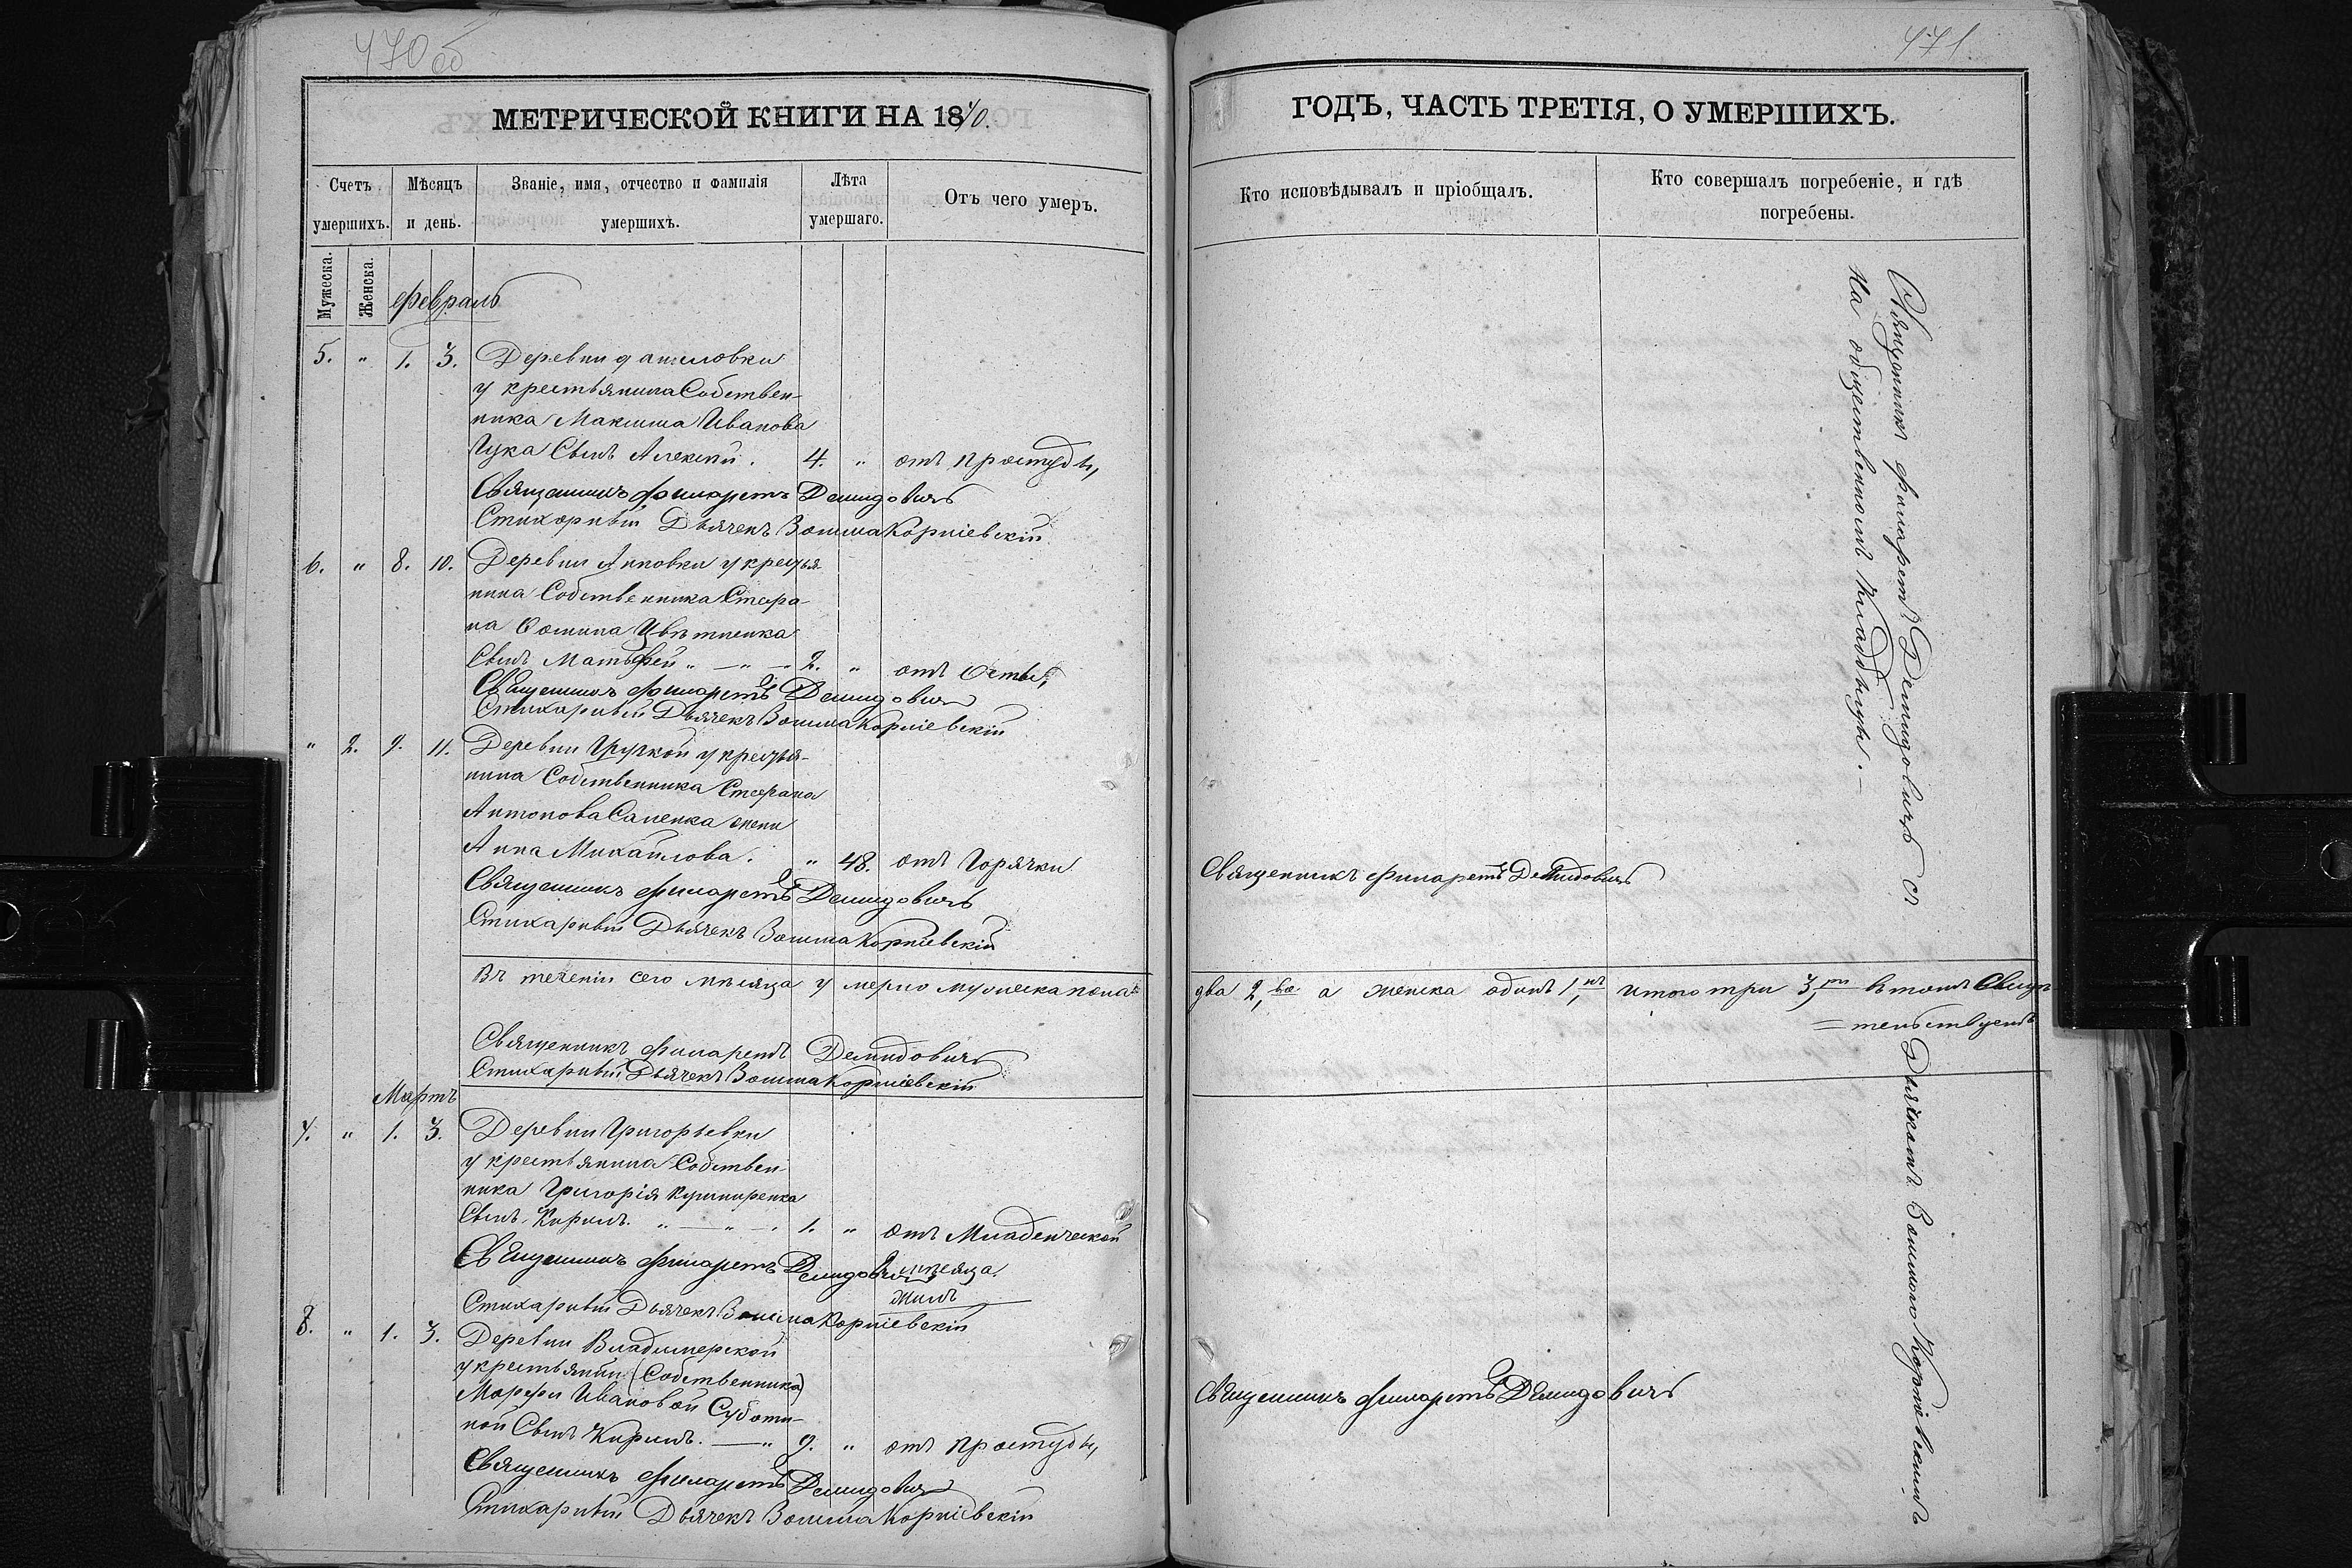 470 об
МЕТРИЧЕСКОЙ КНИГИ НА 1870.
Счетъ умершихъ.
Мѣсяцъ и день.
Званіе, имя, отчество и фамилія умершихъ.
Лѣта умершаго.
Отъ чего умеръ.
Мужеска.
Женска.
февраль
5. " 1. 3. Деревни Даниловки
у крестьянина Собствен-
ника Максима Иванова
Сынъ Алексѣй. 4. " отъ простуды,
Священникъ Филаретъ Демидовичъ
Стихарный Дьячекъ Зосима Корніевскій
6. " 8. 10. Деревни Анновки у крестья-
нина Собственника Стефа-
на Фомина Цвѣтненка
Сынъ Матѳей " — " — 2. " отъ Оспы,
Священникъ Филаретъ Демидовичъ
Стихарный Дьячекъ Зосима Корніевскій
" 2. 9. 11. Деревни Грузкой у крестья-
нина Собственника Стефана
Антонова Саненка жена
Анна Михайлова. " 48. отъ Горячки
Священникъ Филаретъ Демидовичъ
Стихарный Дьячекъ Зосима Корніевскій
Въ теченіи сего мѣсяца умерло мужеска пола
Священникъ Филаретъ Демидовичъ
Стихарный Дьячекъ Зосима Корніевскій
Мартъ
7. " 1. 3. Деревни Григорьевки
у крестьянина Собствен-
ника Григорія Кушниренка
Сынъ Кирилъ. " — " — 1. " отъ Младенческой
Священникъ Филаретъ Демидовичъ
мѣсяца
жилъ
Стихарный Дьячекъ Зосима Корніевскій
8. " 1. 3. Деревни Владимерской
у крестьянки (Собственника)
Марфы Ивановой Суботи-
ной Сынъ Кирилъ. — " 9. " отъ простуды,
Священникъ Филаретъ Демидовичъ
Стихарный Дьячекъ Зосима Корніевскій
471
ГОДЪ, ЧАСТЬ ТРЕТІЯ, О УМЕРШИХЪ.
Кто исповѣдывалъ и пріобщалъ.
Кто совершалъ погребеніе, и гдѣ погребены.
Священникъ Филаретъ Демидовичъ
два 2, ва а женска одинъ 1, нъ итого три 3, ри въ томъ Свидѣ-
= тельствуемъ
Священникъ Филаретъ Демидовичъ
Священникъ Филаретъ Демидовичъ съ Дьячкомъ Зосимою Корніевскимъ
На общественномъ Кладбищѣ. —